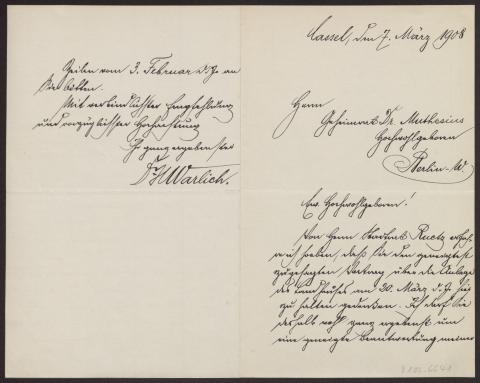 Cassel, den 7. März 1908
Herrn
Geheimrat Dr. Muthesius
Hochwohlgeboren
Berlin-W.
Ew. Hochwohlgeboren!
Von Herrn Stadtrat Ruetz erfah-
re ich soeben, daß Sie den geneigtest
zugesagten Vortrag über die Anlage
des Landhauses am 20. März d. J. hier
zu halten gedenken. Ich darf Sie
deshalb wohl ganz ergebenst um
eine geneigte Beantwortung meiner
Zeilen vom 3. Februar d. Js. an
Sie bitten.
Mit verbindlichster Empfehlung
und vorzüglichster Hochachtung
Ihr ganz ergebenster
Dr H Warlich.